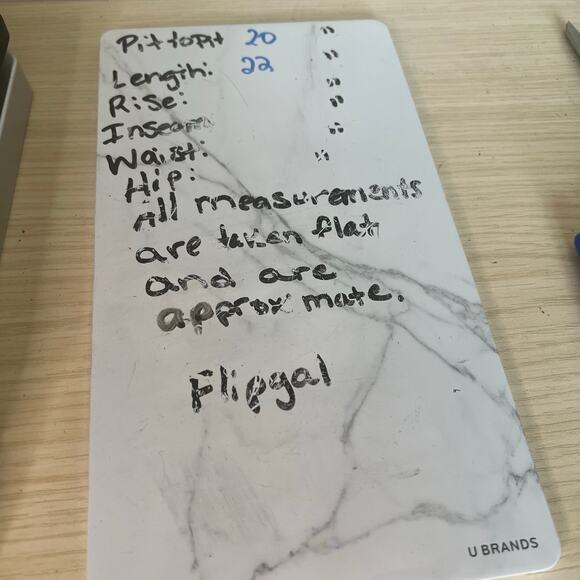 Pit to Pit 20 "
Length: 22 "
Rise: "
Inseam "
Waist: "
Hip:
All measurements
are taken flat
and are
approx mate.
Flipgal
U BRANDS